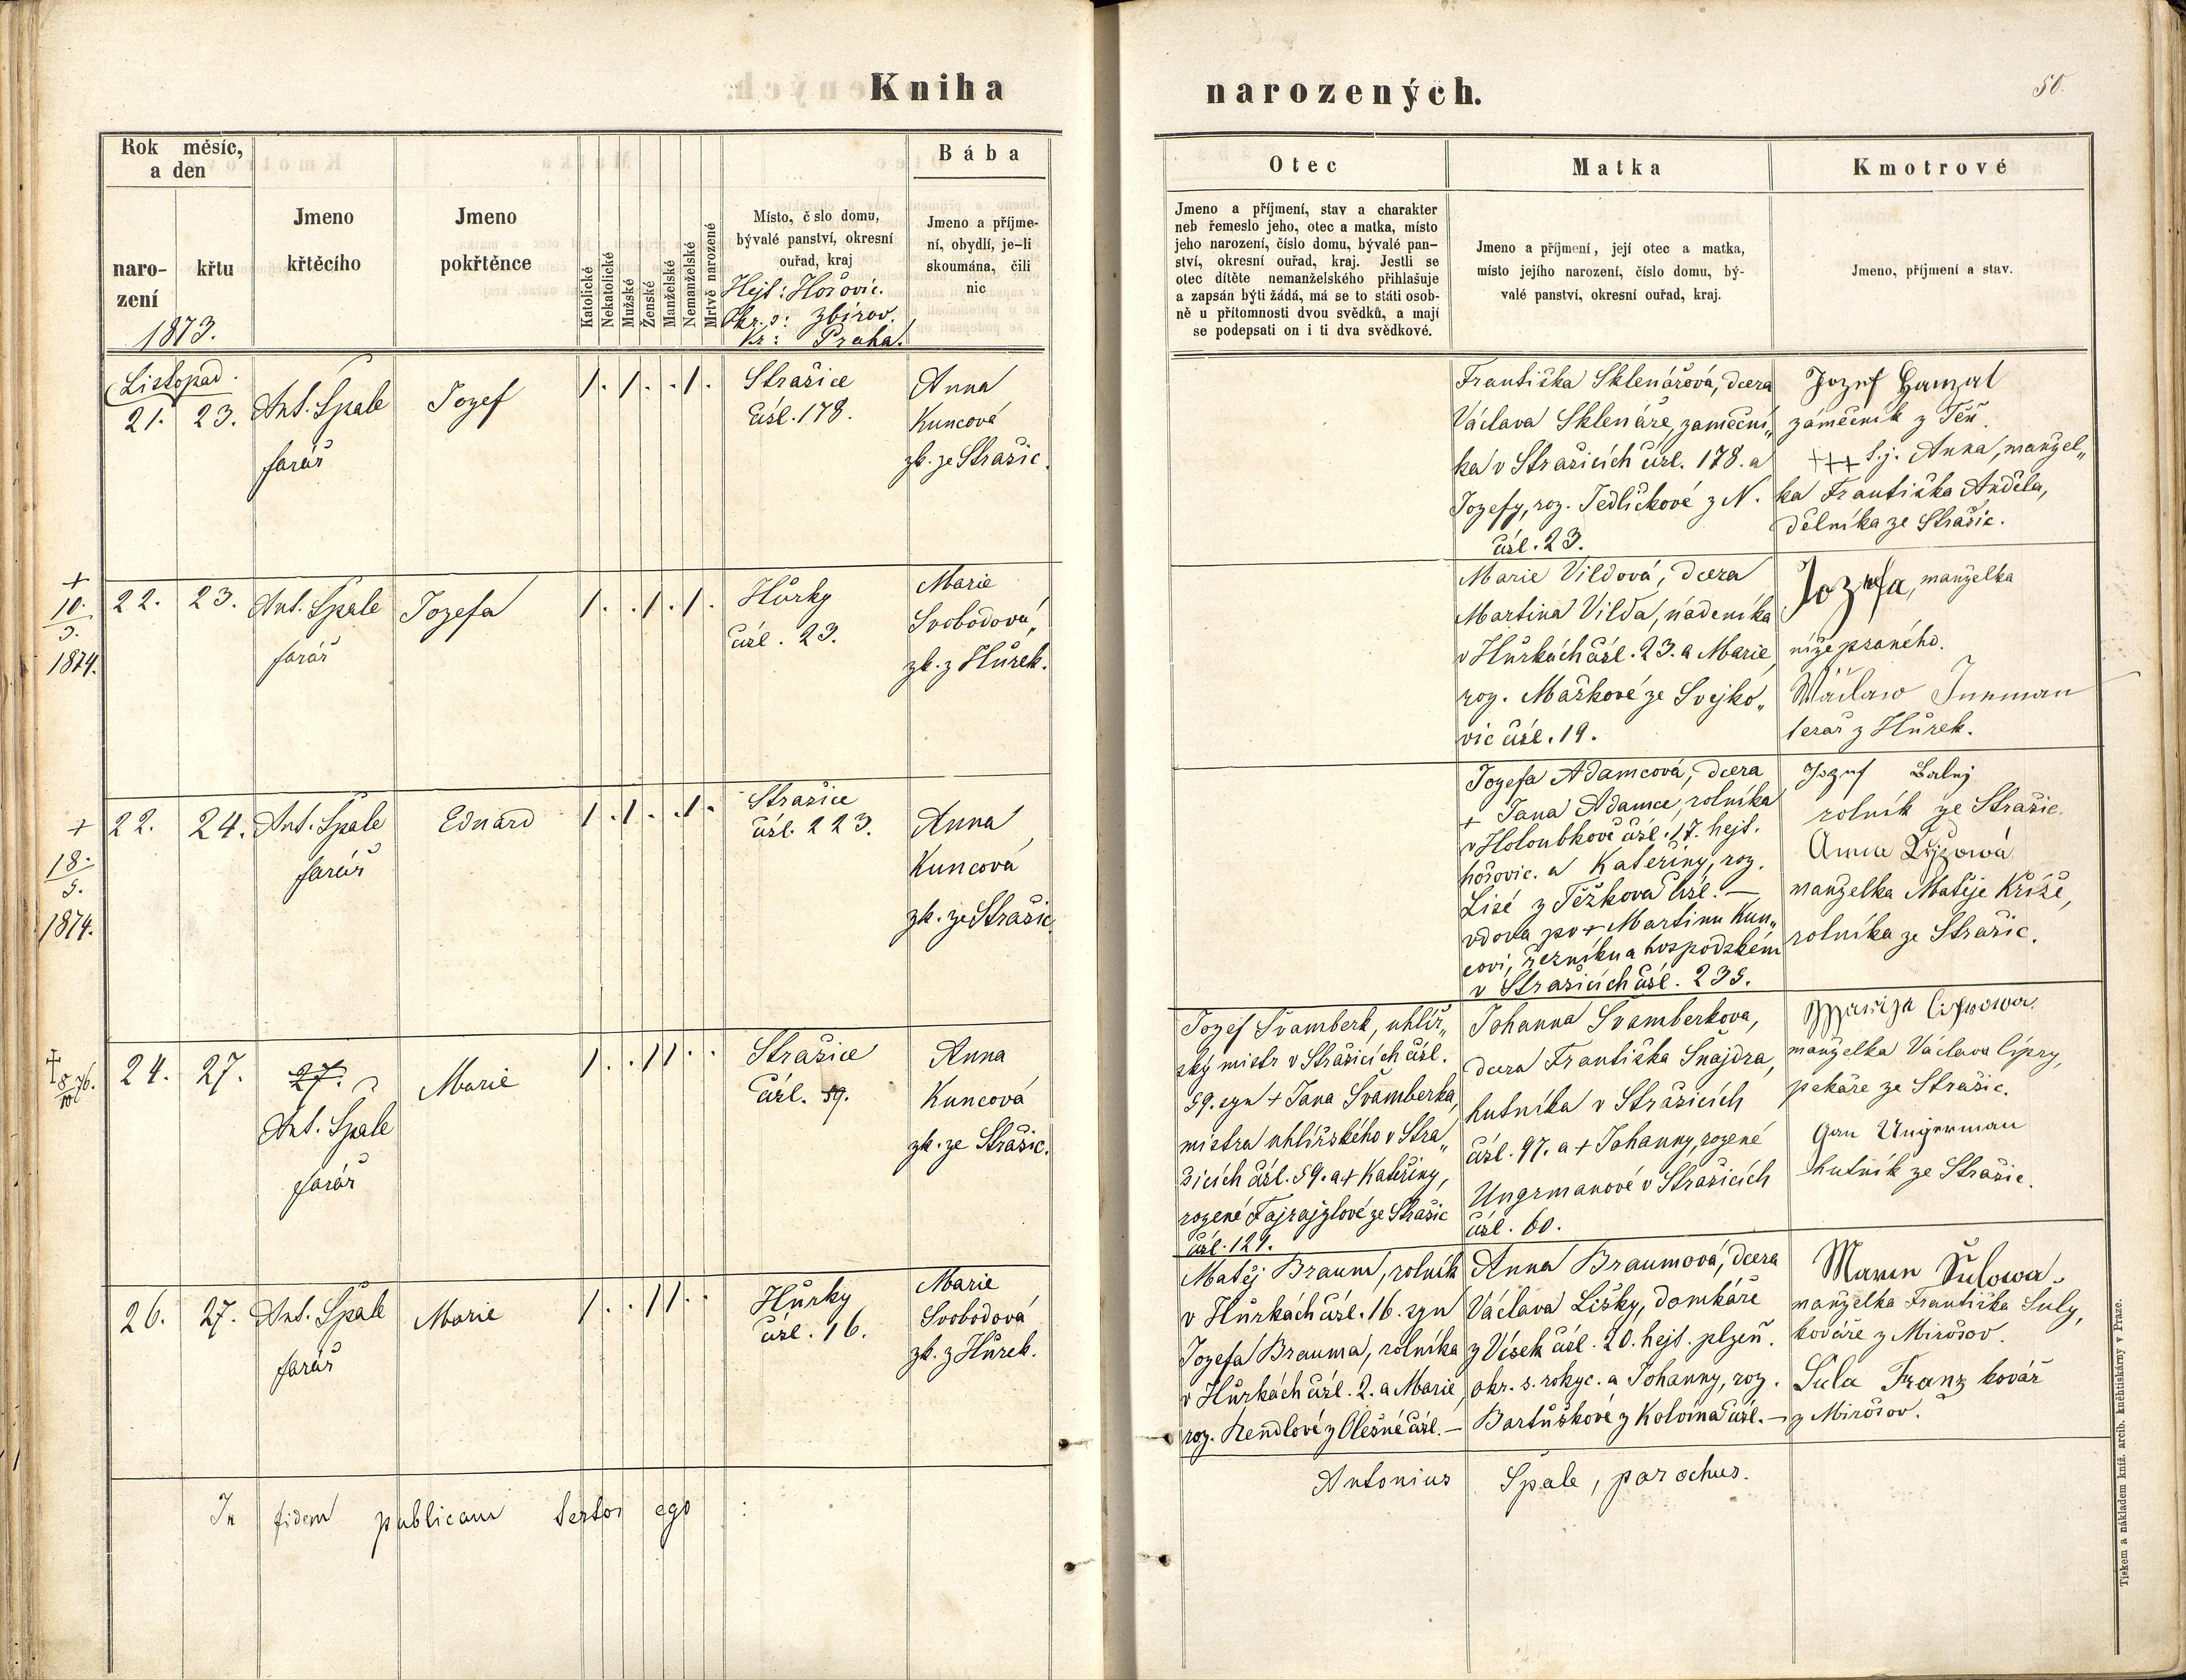 Kniha
narozených.
50.
Rok měsíc,
a den
naro-
zení
křtu
1873.
Jmeno
křtěcího
Jmeno
pokřtěnce
Katolické
Nekatolické
Mužské
Ženské
Manželské
Nemanželské
Mrtvě narozené
Místo, č slo domu,
bývalé panství, okresní
ouřad, kraj
Hejt: Hořovic.
Okr. s: Zbirov.
Kr: Praha.
Bába
Jmeno a příjme-
ní, obydlí, je-li
skoumána, čili
nic
Otec
Jmeno a příjmení, stav a charakter
neb řemeslo jeho, otec a matka, místo
jeho narození, číslo domu, bývalé pan-
ství, okresní ouřad, kraj. Jestli se
otec dítěte nemanželského přihlašuje
a zapsán býti žádá, má se to státi osob-
ně u přítomnosti dvou svědků, a mají
se podepsati on i ti dva svědkové.
Matka
Jmeno a příjmení, její otec a matka,
místo jejího narození, číslo domu, bý-
valé panství, okresní ouřad, kraj.
Kmotrové
Jmeno, příjmení a stav.
Listopad.
21. 23.
Ant. Špale
farář
Jozef
/. /. ./.
Strašice
čísl. 178.
Anna
Kuncová
zk. ze Strašic.
Františka Sklenářová, dcera
Václava Sklenáře, zameční„
ka v Strašicích čísl. 178. a
Jozefy, roz. Jedličkové z N.
čísl. 23.
Jozef Hanzal
zámečník z Těň.
+++ s.j. Anna, manžel„
ka Františka Anděla,
dělníka ze Strašic.
+
10.
5.
1874.
22. 23.
Ant. Špale
farář
Jozefa
/. ./. /.
Hůrky
čísl. 23.
Marie
Svobodová,
zk. z Hůrek.
Marie Vildová, dcera
Martina Vilda, nádeníka
v Hůrkách čísl. 23. a Marie,
roz. Maškové ze Svejko„
vic čísl. 19.
Jozefa, manželka
níže psaného.
Wáclaw
tesař z Hůrek.
+
18.
5.
1874.
22. 24.
Ant. Špale
farář
Eduard
/. ./. ./.
Strašice
čísl. 223.
Anna
Kuncová
zk. ze Strašic.
Jozefa Adamcová, dcera
+ Jana Adamce, rolníka
v Holoubkově čísl. 17. hejt.
hořovic. a Kateřiny, roz.
Lisé z Těžkova čísl. —
vdova po + Martinu Kun„
covi, řezníku a hospodském
v Strašicích čísl. 235.
Jozef
rolník ze Strašic.
Anna
manželka Matěje Kříže,
rolníka ze Strašic.
+
8/10 76.
24. 27.
27.
Ant. Špale
farář
Marie
/. ./ /. .
Strašice
čísl. 59.
Anna
Kuncová
zk. ze Strašic.
Jozef Švamberk, uhlíř„
ský mistr v Strašicích čísl.
59. syn + Jana Švamberka,
mistra uhlířského v Stra„
šicích čísl. 59. a + Kateřiny,
rozené Fajrajzlové ze Strašic
čísl. 121.
Johanna Švamberkova,
dcera Františka Šnajdra,
hutníka v Strašicích
čísl. 97. a + Johanny, rozené
Ungrmanové v Strašicích
čísl. 60.
manželka Václava Cípry,
pekaře ze Strašic.
Jan Ungerman
hutník ze Strašic.
26. 27.
Ant. Špale
farář
Marie
/. ./ /. .
Hůrky
čísl. 16.
Marie
Svobodová
zk. z Hůrek.
Matěj Braum, rolník
v Hůrkách čísl. 16. syn
Jozefa Brauma, rolníka
v Hůrkách čísl. 2. a Marie,
roz. Hendlové z Olešné čísl. —
Anna Braumová, dcera
Václava Lišky, domkáře
z Vísek čísl. 20. hejt. plzeň.
okr. s. rokyc. a Johanny, roz.
Bartůškové z Kolvína čísl. —
Šulowa
manželka Františka Šuly,
kováře z Mirošov.
Šula Franz kovář
z Mirošov.
In fidem publicam testor ego :
Antonius Špale, parochus.
Tiskem a nákladem kníž. arcib. kněhtiskárny v Praze.